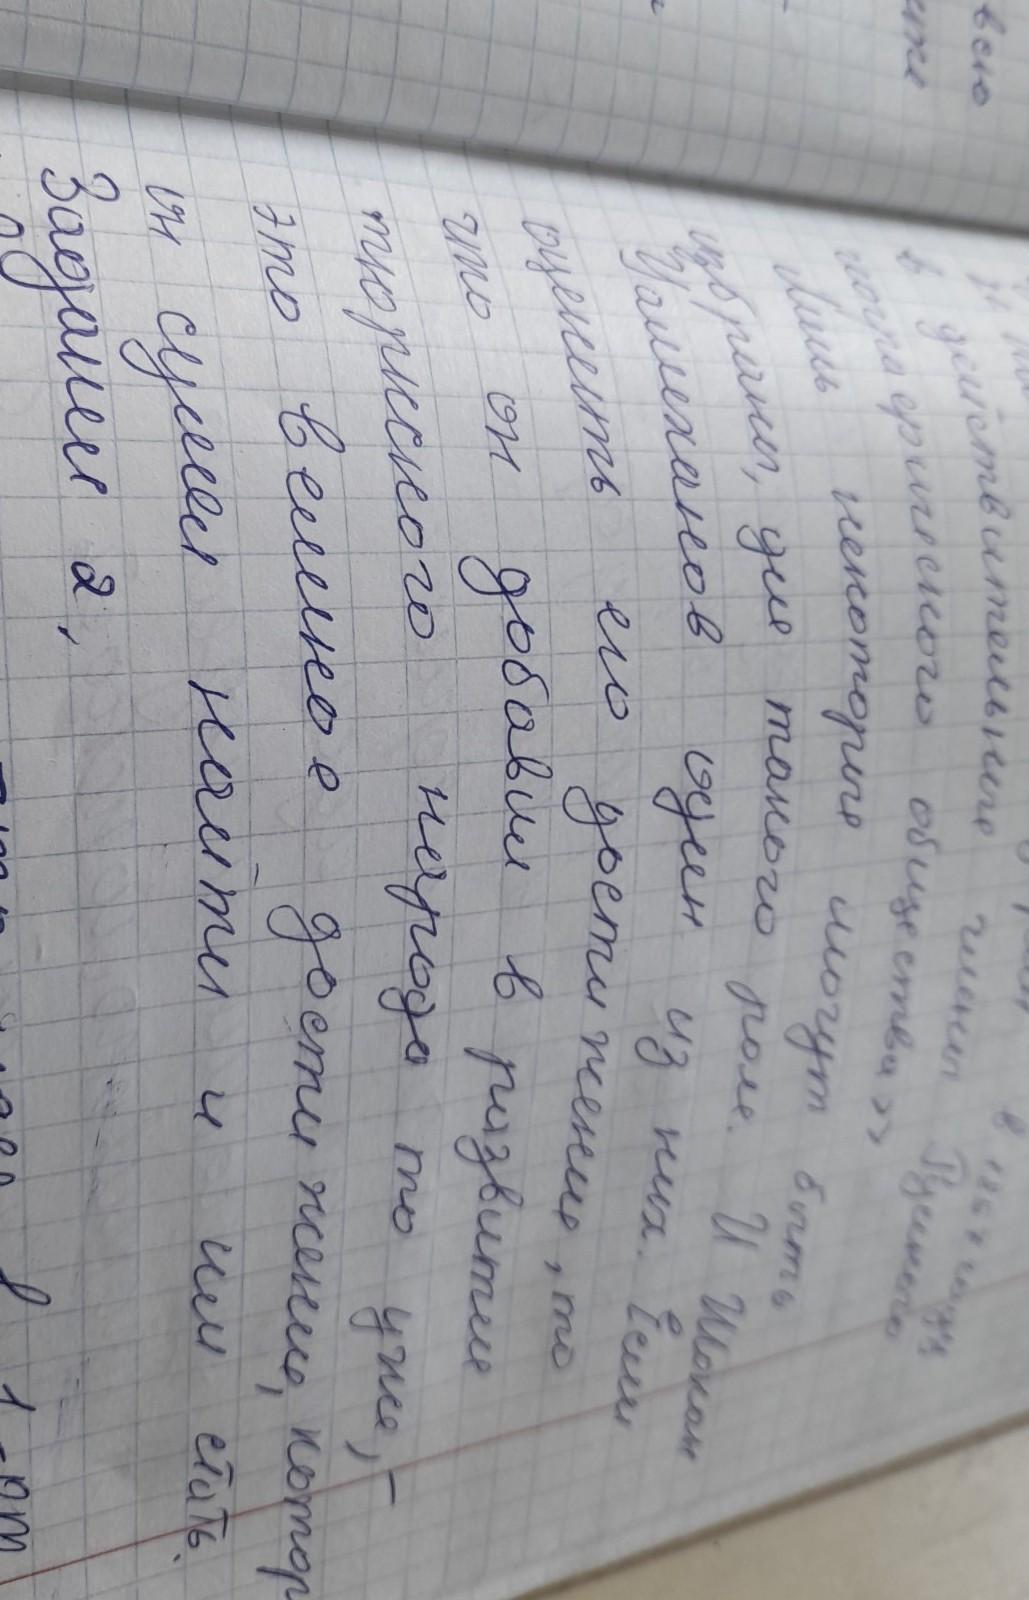 всю
в действительные члены в
географического общества>> Русского
Лишь некоторые могут быть
избраны, для такого роле. И Шокан
Уалиханов один из них. Если
оценить его достижение, то
что он добавил в развитие
тюркского народа то уже, -
это великое достижение, котор
он сумел найти и им стать.
Задание 2,